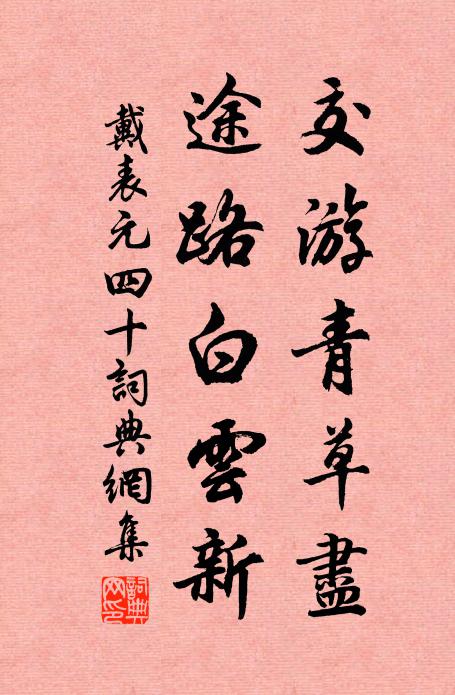 交游青草盡
途路白雲新
戴表元四十詞典網集
詞典网印